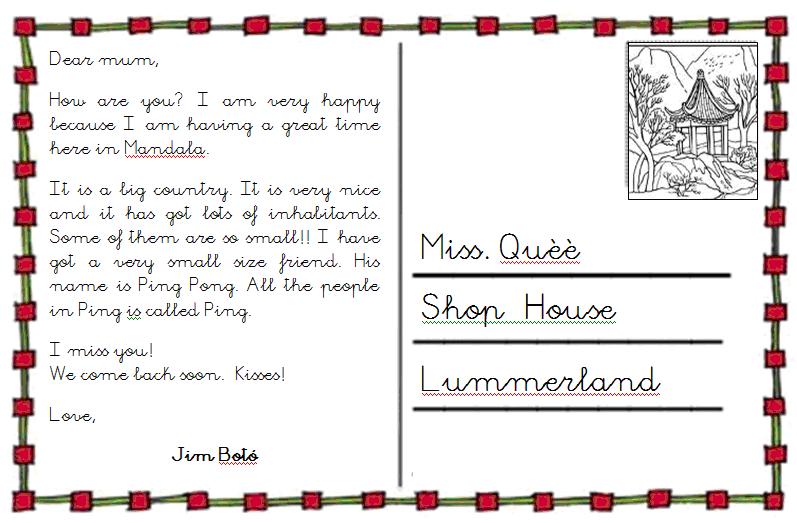 Dear mum,
How are you? I am very happy
because I am having a great time
here in Mandala.
It is a big country. It is very nice
and it has got lots of inhabitants.
Some of them are so small!! I have
got a very small size friend. His
name is Ping Pong. All the people
in Ping is called Ping.
I miss you!
We come bach soon. Kisses!
Love,
Jim Botó
Miss. Quèè
Shop House
Lummerland